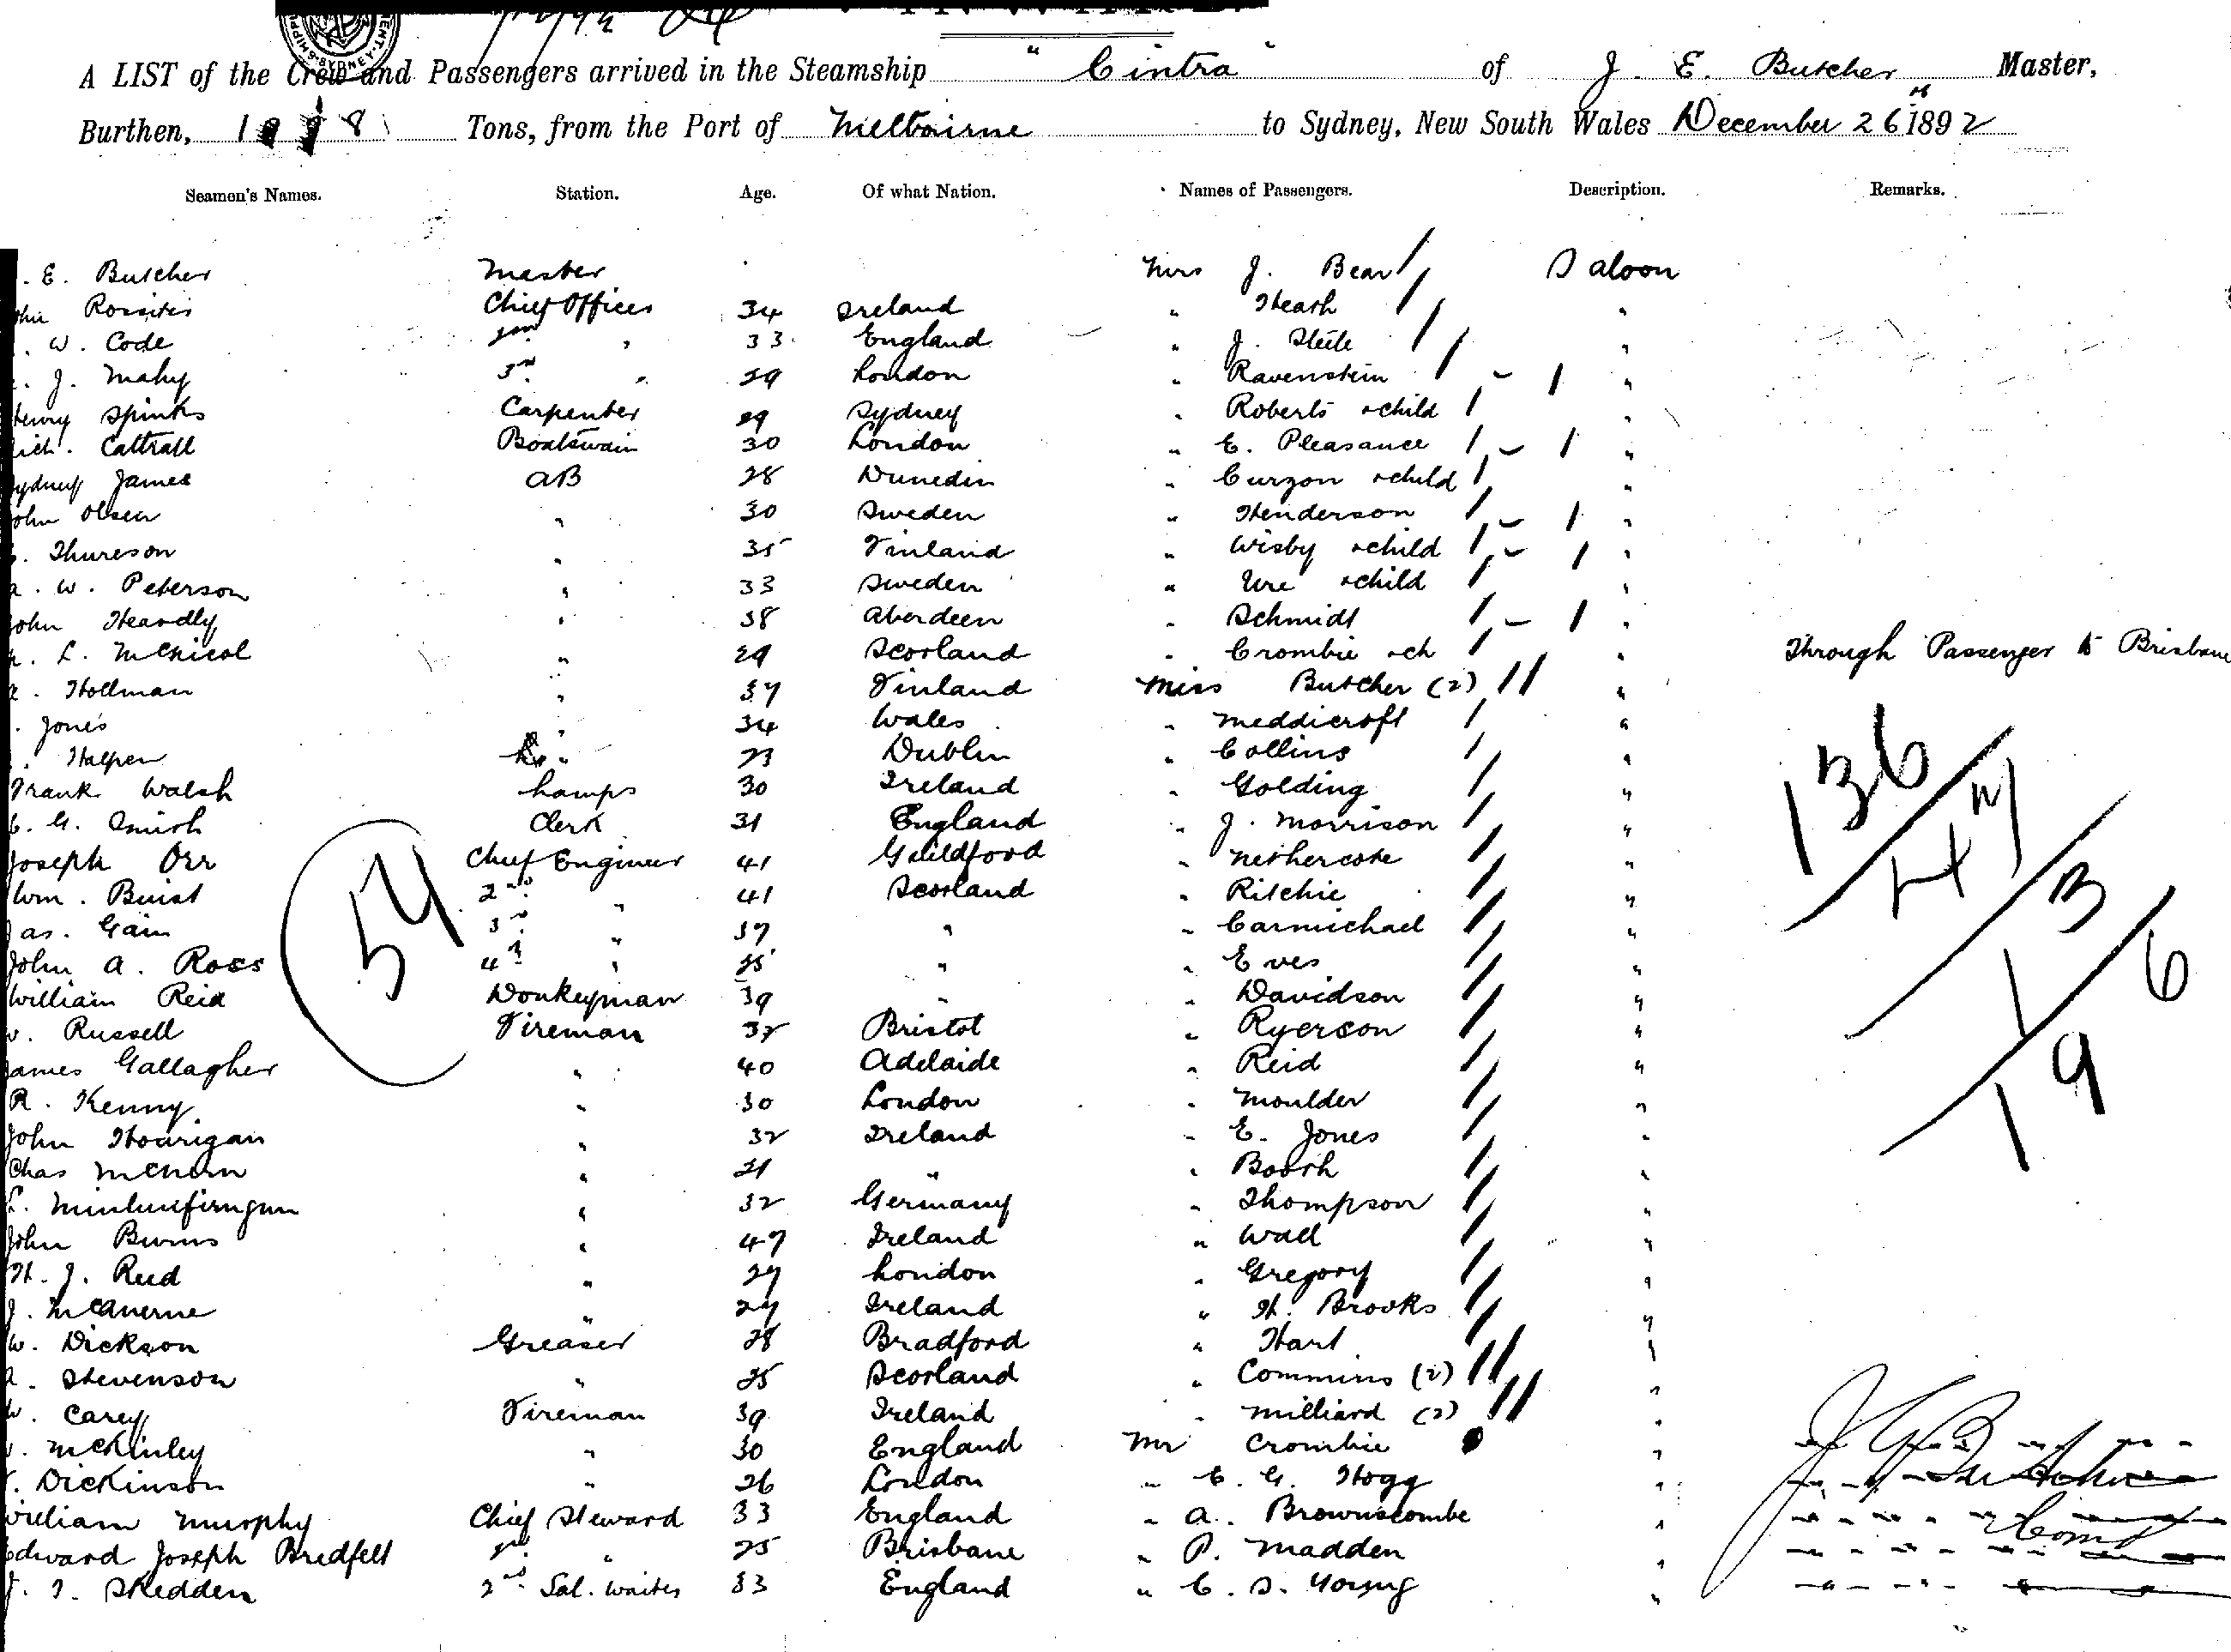 A LIST of the Crew and Passengers arrived in the Steamship "Cintra" of J. E. Butcher Master,
Burthen, Tons, from the Port of Melbourne to Sydney, New South Wales December 26th 1892
Seamen's Names. Station. Age. Of what Nation. Names of Passengers. Description. Remarks.
. E. Butcher Master Mrs J. Bear Saloon
Chief Officer 34 Ireland " Heath "
. W. Code 2nd " 33 England " J. Steele "
. J. Mahy 3rd " 29 London " Ravenstein "
Henry Spinks Carpenter 29 Sydney " Roberts & child
Rich. Cattrall Boatswain 30 London " E. Pleasance "
Sydney James AB 28 Dunedin " Curzon & child "
John Olsen " 30 Sweden " Henderson "
. Thureson " 35 Finland " Wisby & child "
A. W. Peterson " 33 Sweden " Ure & child "
John Heardly " 38 Aberdeen " Schmidt "
. L. McNicol " 29 Scotland " Crombie & ch " Through Passenger to Brisbane
. Hollman " 37 Finland Miss Butcher (2) "
. Jones " 34 Wales " Meddicroft "
. Halpen " 23 Dublin " Collins "
Frank Walsh Lamps 30 Ireland " Golding "
C. G. Smith Clerk 31 England " J. Morrison "
Joseph Orr Chief Engineer 41 Guildford " Nethercote "
Wm. Buist 2nd " 41 Scotland " Ritchie "
Jas. Gain 3rd " 37 " " Carmichael "
John A. Ross 4th " 25 " " Eves "
William Reid Donkeyman 39 " " Davidson "
W. Russell Fireman 32 Bristol " Ryerson "
James Gallagher " 40 Adelaide " Reid "
R. Kenny " 30 London " Moulder "
John Hourigan " 32 Ireland " E. Jones "
Chas " 21 " " Booth "
" 32 Germany " Thompson "
John Burns " 47 Ireland " Wall "
H. J. Reed " 27 London " Gregory "
J. McAnerne " 27 Ireland " H. Brooks "
W. Dickson Greaser 28 Bradford " Hart "
A. Stevenson " 25 Scotland " Commins (2) "
W. Carey Fireman 39 Ireland " Milliard (2) "
. McKinley " 30 England Mr Crombie "
. Dickinson " 26 London " E. G. Hogg "
William Murphy Chief Steward 33 England " A. Brownscombe "
Edward Joseph Bredfelt 2nd " 25 Brisbane " P. Madden "
J. T. Skedden 2nd Sal. Waiter 33 England " C. S. Young "
54
136
3
1 6
19
J E Butcher